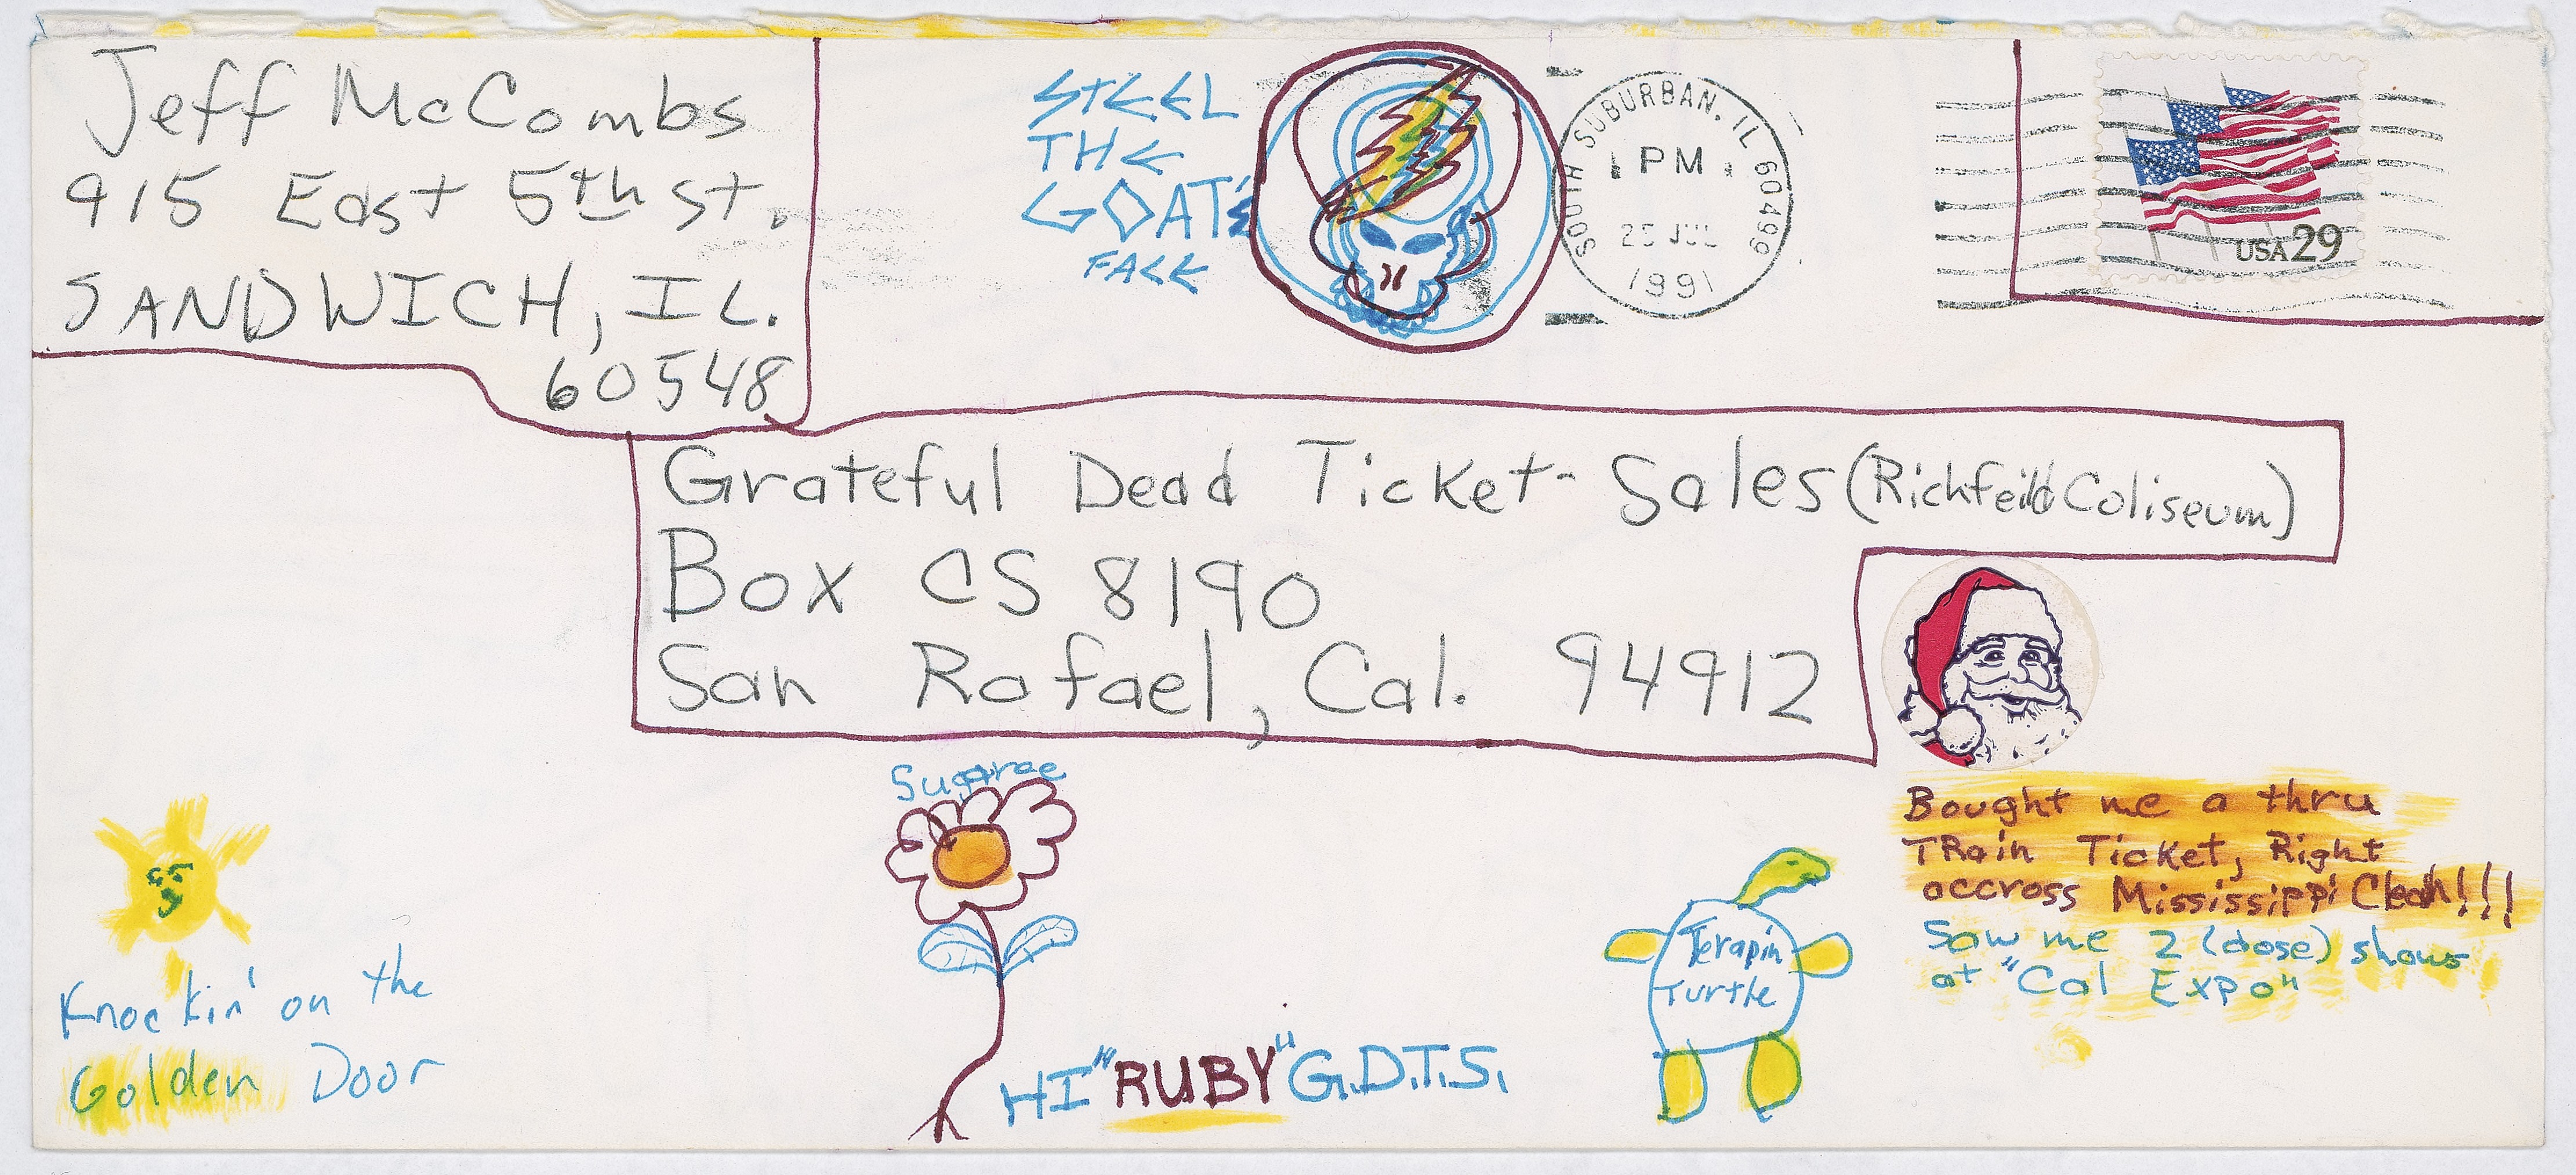 Jeff McCombs
915 East 5th St.
SANDWICH, IL.
60548
STEEL
THE
GOAT'S
FACE
SOUTH SUBURBAN, IL 60499
PM
25 JUL
1991
USA 29
Grateful Dead Ticket-Sales (Richfeild Coliseum)
Box CS 8190
San Rafael, Cal. 94912
Sugaree
Bought me a thru
TRain Ticket, Right
accross Mississippi Cleah!!!
Saw me 2 (dose) shows
at "Cal Expo"
Terapin
Turtle
Knockin' on the
Golden Door
HI "RUBY" G.D.T.S.